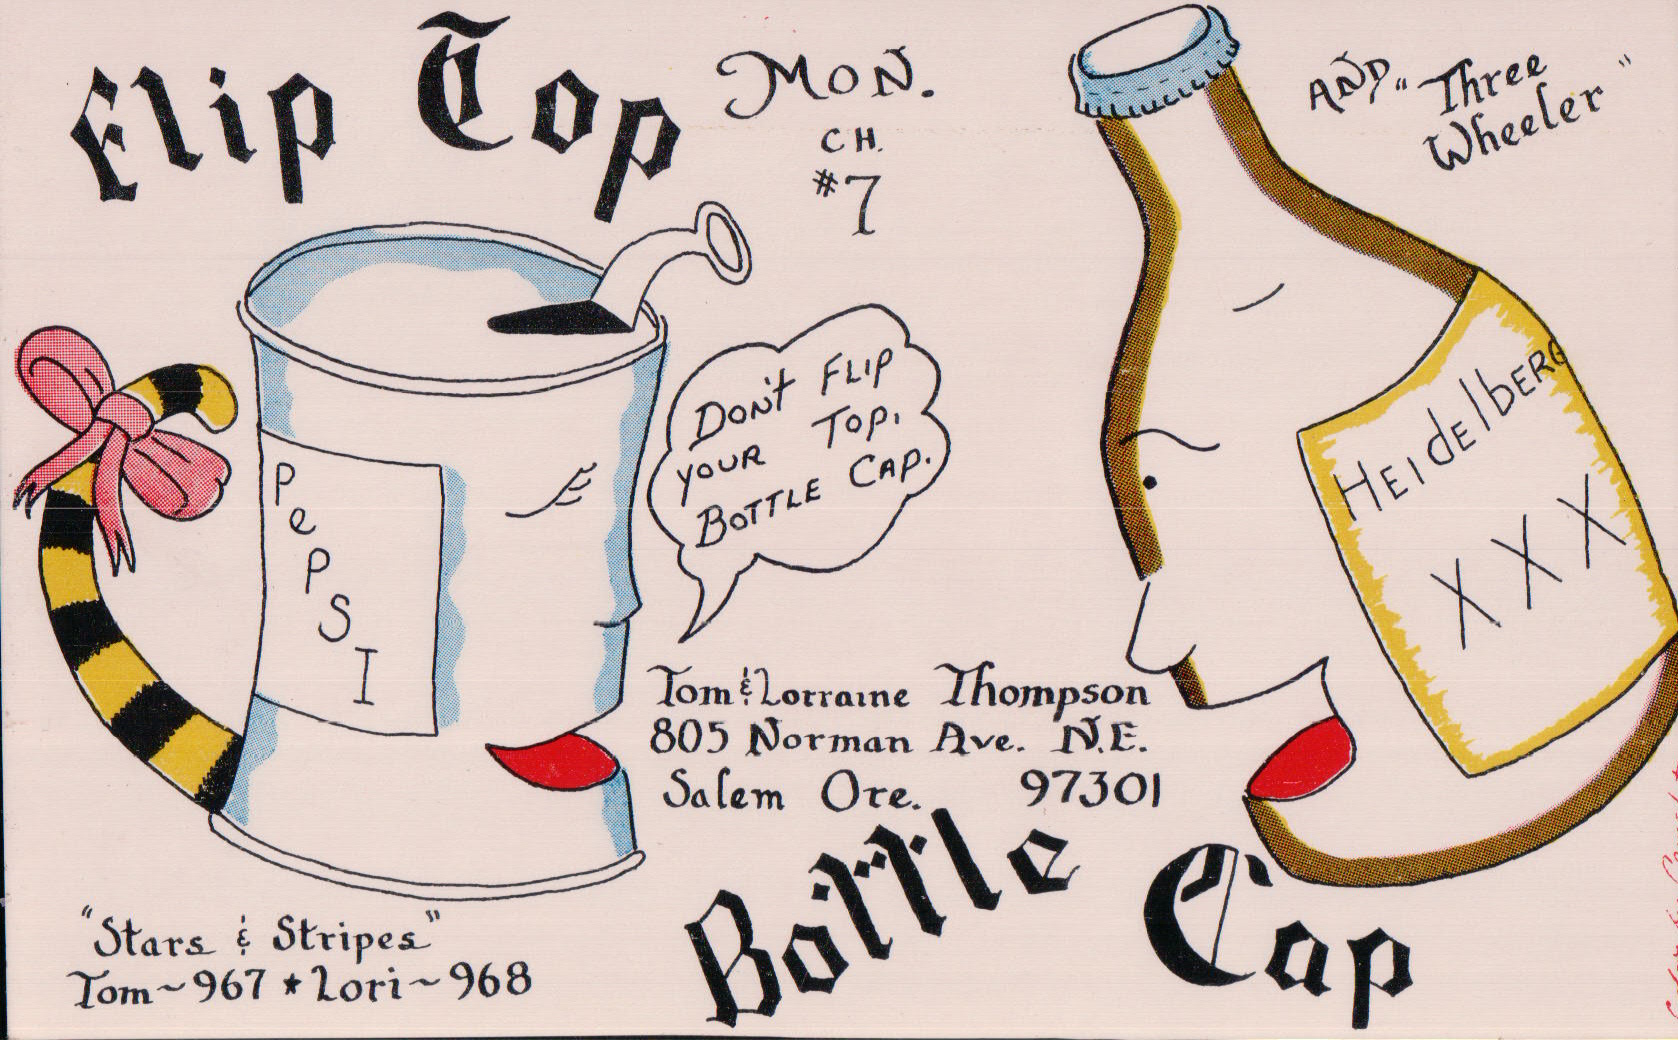 Flip Top
MON.
CH.
#7
AND "Three
Wheeler"
DON't FLIP
YOUR TOP,
BOTTLE CAP.
PePSI
HEIdElbERG
XXX
Tom & Lorraine Thompson
805 Norman Ave. N.E.
Salem Ore. 97301
Bottle Cap
"Stars & Stripes"
Tom~967 ★ Lori~968